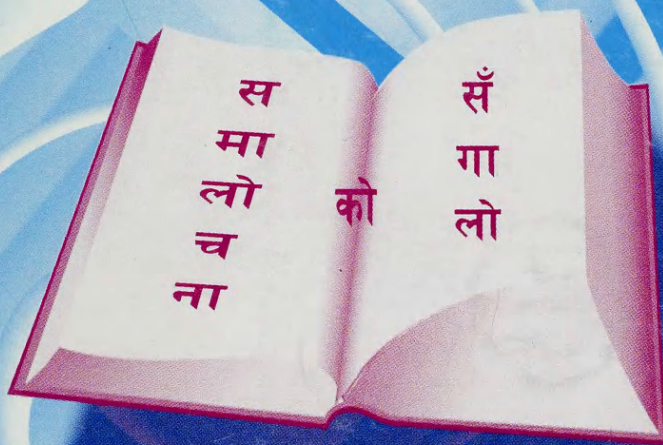 स
मा
लो
च
ना
को
सँ
गा
लो